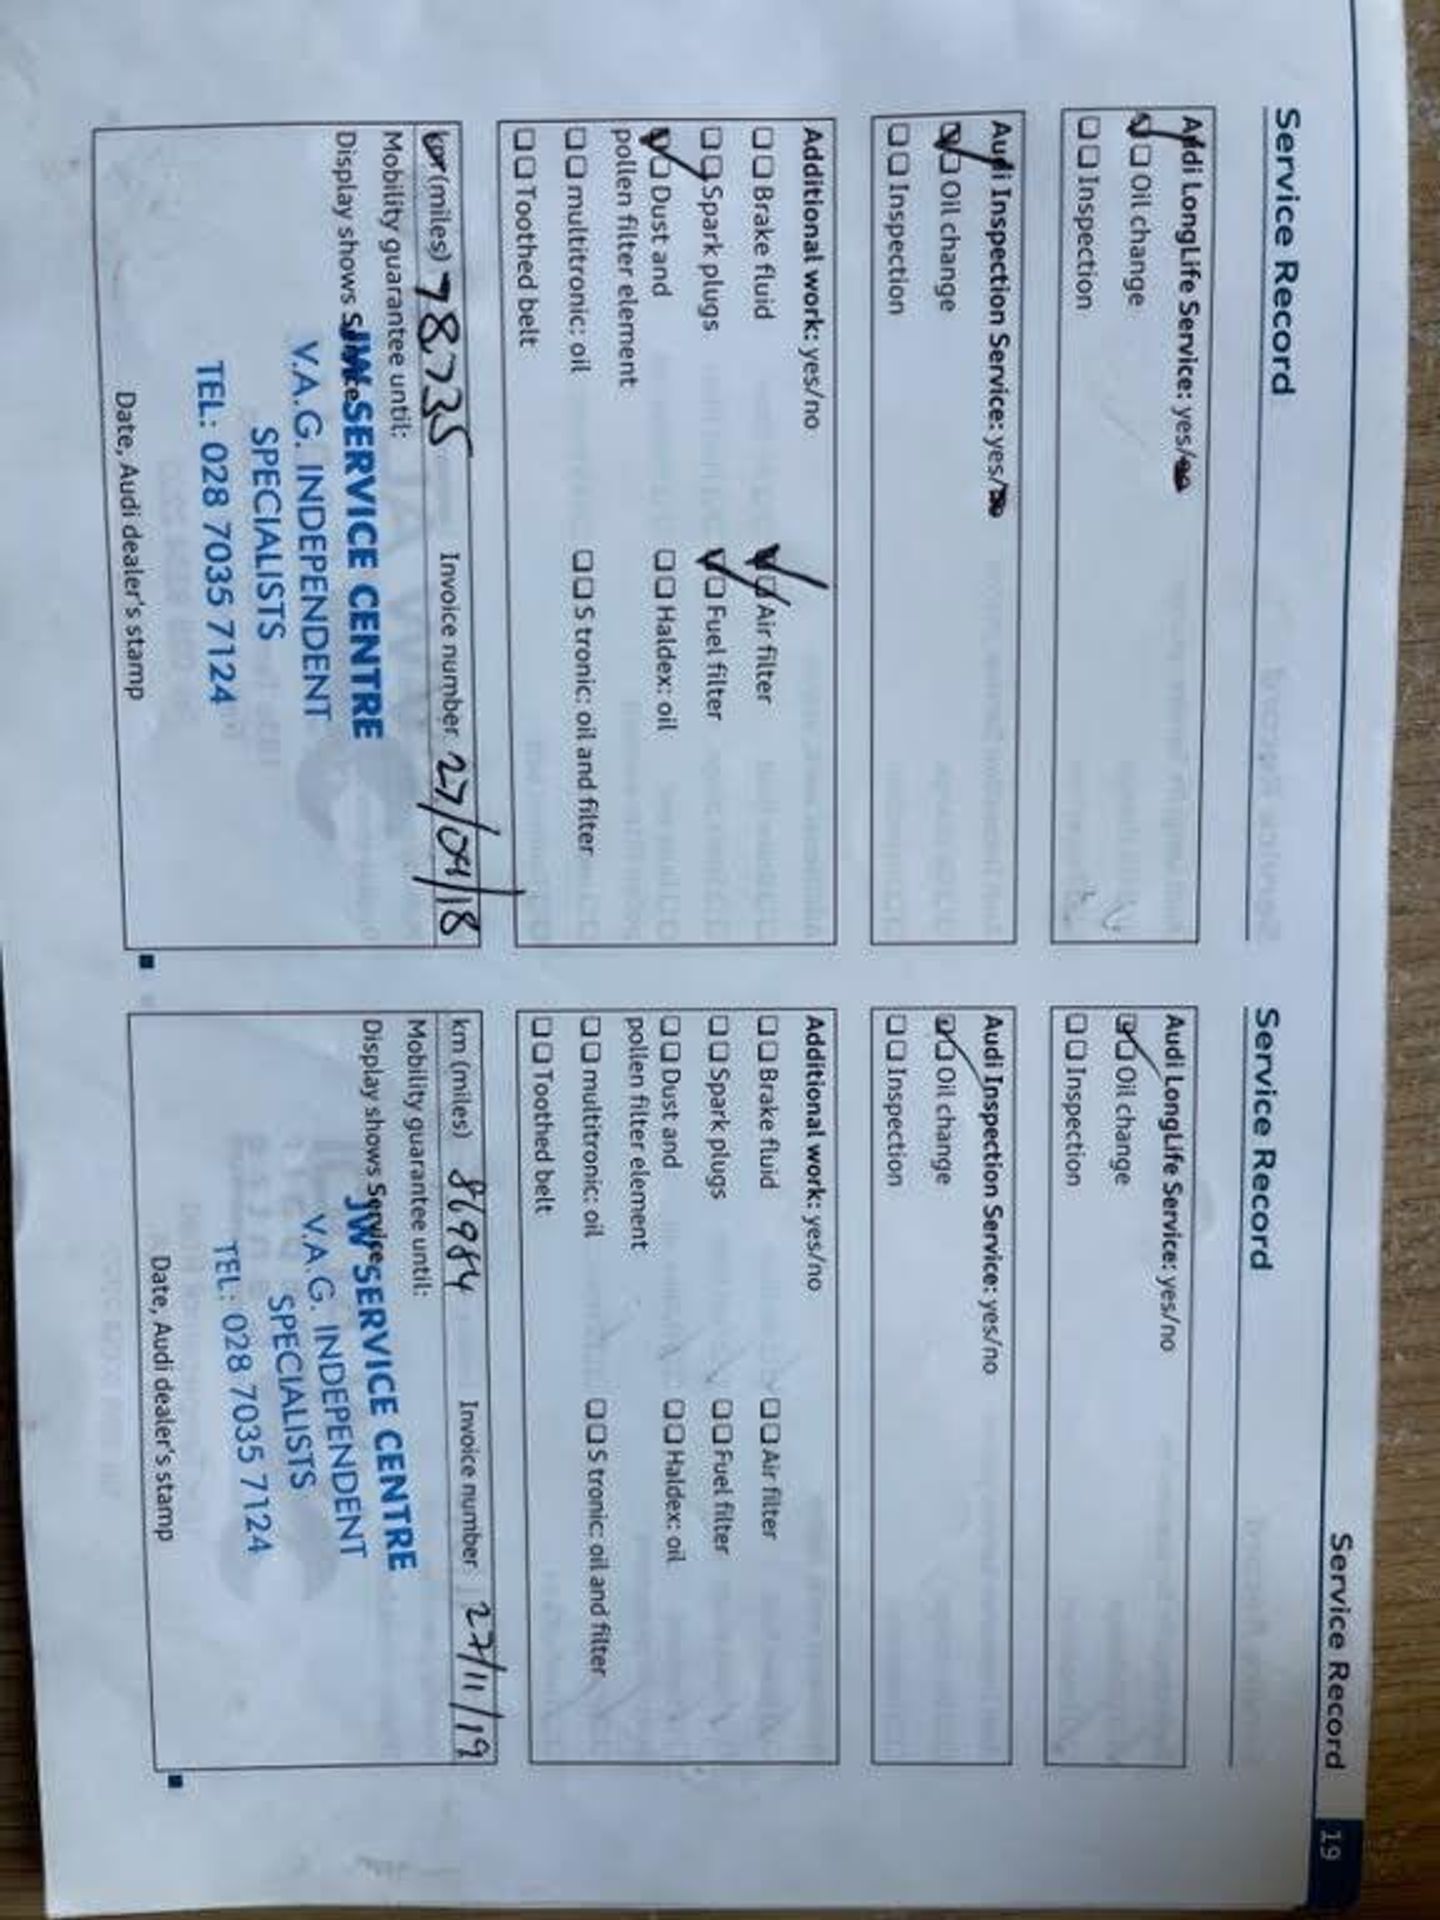 Service Record 19
Service Record
Audi LongLife Service: yes/no
Oil change
Inspection
Audi Inspection Service: yes/no
Oil change
Inspection
Additional work: yes/no
Brake fluid
Air filter
Spark plugs
Fuel filter
Dust and
pollen filter element
Haldex: oil
multitronic: oil
S tronic: oil and filter
Toothed belt
km (miles) 78735 Invoice number 27/04/18
Mobility guarantee until:
Display shows Service
JW SERVICE CENTRE
V.A.G. INDEPENDENT
SPECIALISTS
TEL: 028 7035 7124
Date, Audi dealer's stamp
Service Record
Audi LongLife Service: yes/no
Oil change
Inspection
Audi Inspection Service: yes/no
Oil change
Inspection
Additional work: yes/no
Brake fluid
Air filter
Spark plugs
Fuel filter
Dust and
pollen filter element
Haldex: oil
multitronic: oil
S tronic: oil and filter
Toothed belt
km (miles) 86984 Invoice number 27/11/19
Mobility guarantee until:
Display shows Service
JW SERVICE CENTRE
V.A.G. INDEPENDENT
SPECIALISTS
TEL: 028 7035 7124
Date, Audi dealer's stamp